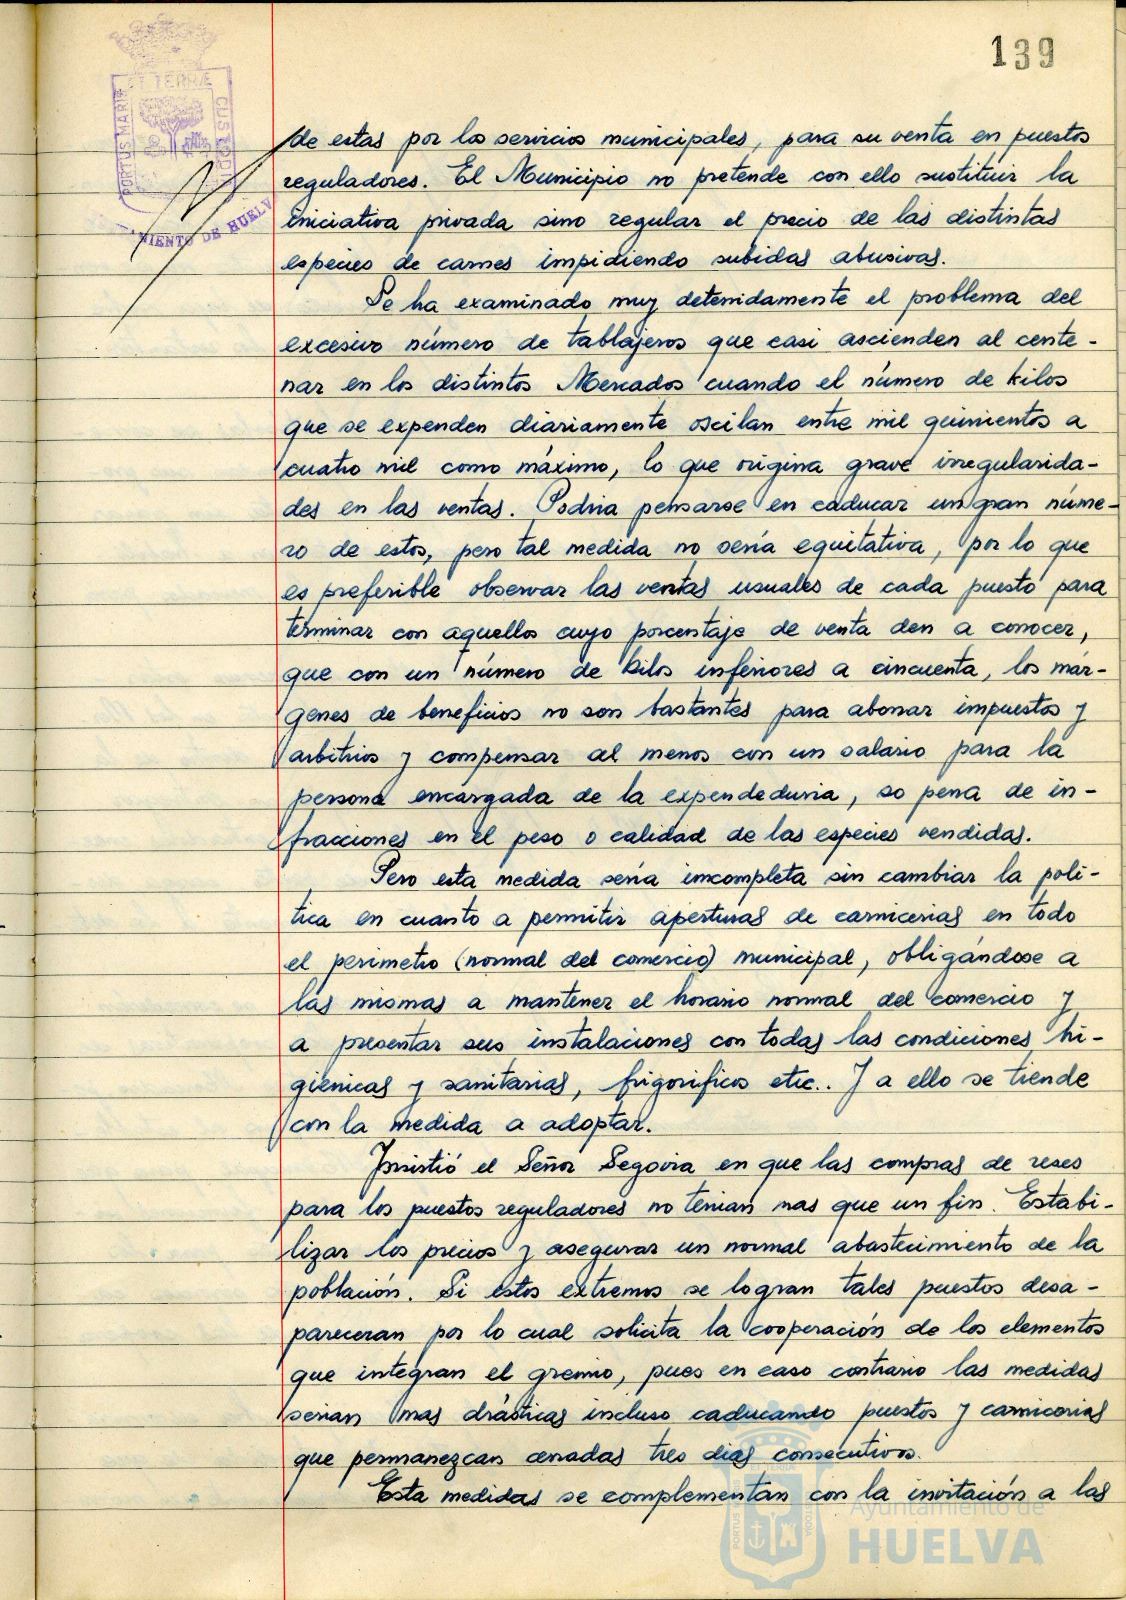 139
PORTUS MARIS ET TERRÆ CUSTODIA
AYUNTAMIENTO DE HUELVA
de estas por los servicios municipales, para su venta en puestos
reguladores. El Municipio no pretende con ello sustituir la
iniciativa privada sino regular el precio de las distintas
especies de carnes impidiendo subidas abusivas.
Se ha examinado muy detenidamente el problema del
excesivo número de tablajeros que casi ascienden al cente-
nar en los distintos Mercados cuando el número de kilos
que se expenden diariamente oscilan entre mil quinientos a
cuatro mil como máximo, lo que origina grave irregularida-
des en las ventas. Podria pensarse en caducar un gran núme-
ro de estos, pero tal medida no sería equitativa, por lo que
es preferible observar las ventas usuales de cada puesto para
terminar con aquellos cuyo porcentaje de venta den a conocer,
que con un número de kilos inferiores a cincuenta, los már-
genes de beneficios no son bastantes para abonar impuestos y
arbitrios y compensar al menos con un salario para la
persona encargada de la expendeduria, so pena de in-
fracciones en el peso o calidad de las especies vendidas.
Pero esta medida sería imcompleta sin cambiar la poli-
tica en cuanto a permitir aperturas de carnicerias en todo
el perimetro (normal del comercio) municipal, obligándose a
las mismas a mantener el horario normal del comercio y
a presentar sus instalaciones con todas las condiciones hi-
gienicas y sanitarias, frigorificos etc.. Y a ello se tiende
con la medida a adoptar.
Insistió el Señor Segovia en que las compras de reses
para los puestos reguladores no tenian mas que un fin. Estabi-
lizar los precios y asegurar un normal abastecimiento de la
población. Si estos extremos se logran tales puestos desa-
pareceran por lo cual solicita la cooperación de los elementos
que integran el gremio, pues en caso contrario las medidas
serian mas drásticas incluso caducando puestos y carnicerias
que permanezcan cerradas tres dias consecutivos.
Esta medidas se complementan con la invitación a las
Ayuntamiento de
HUELVA